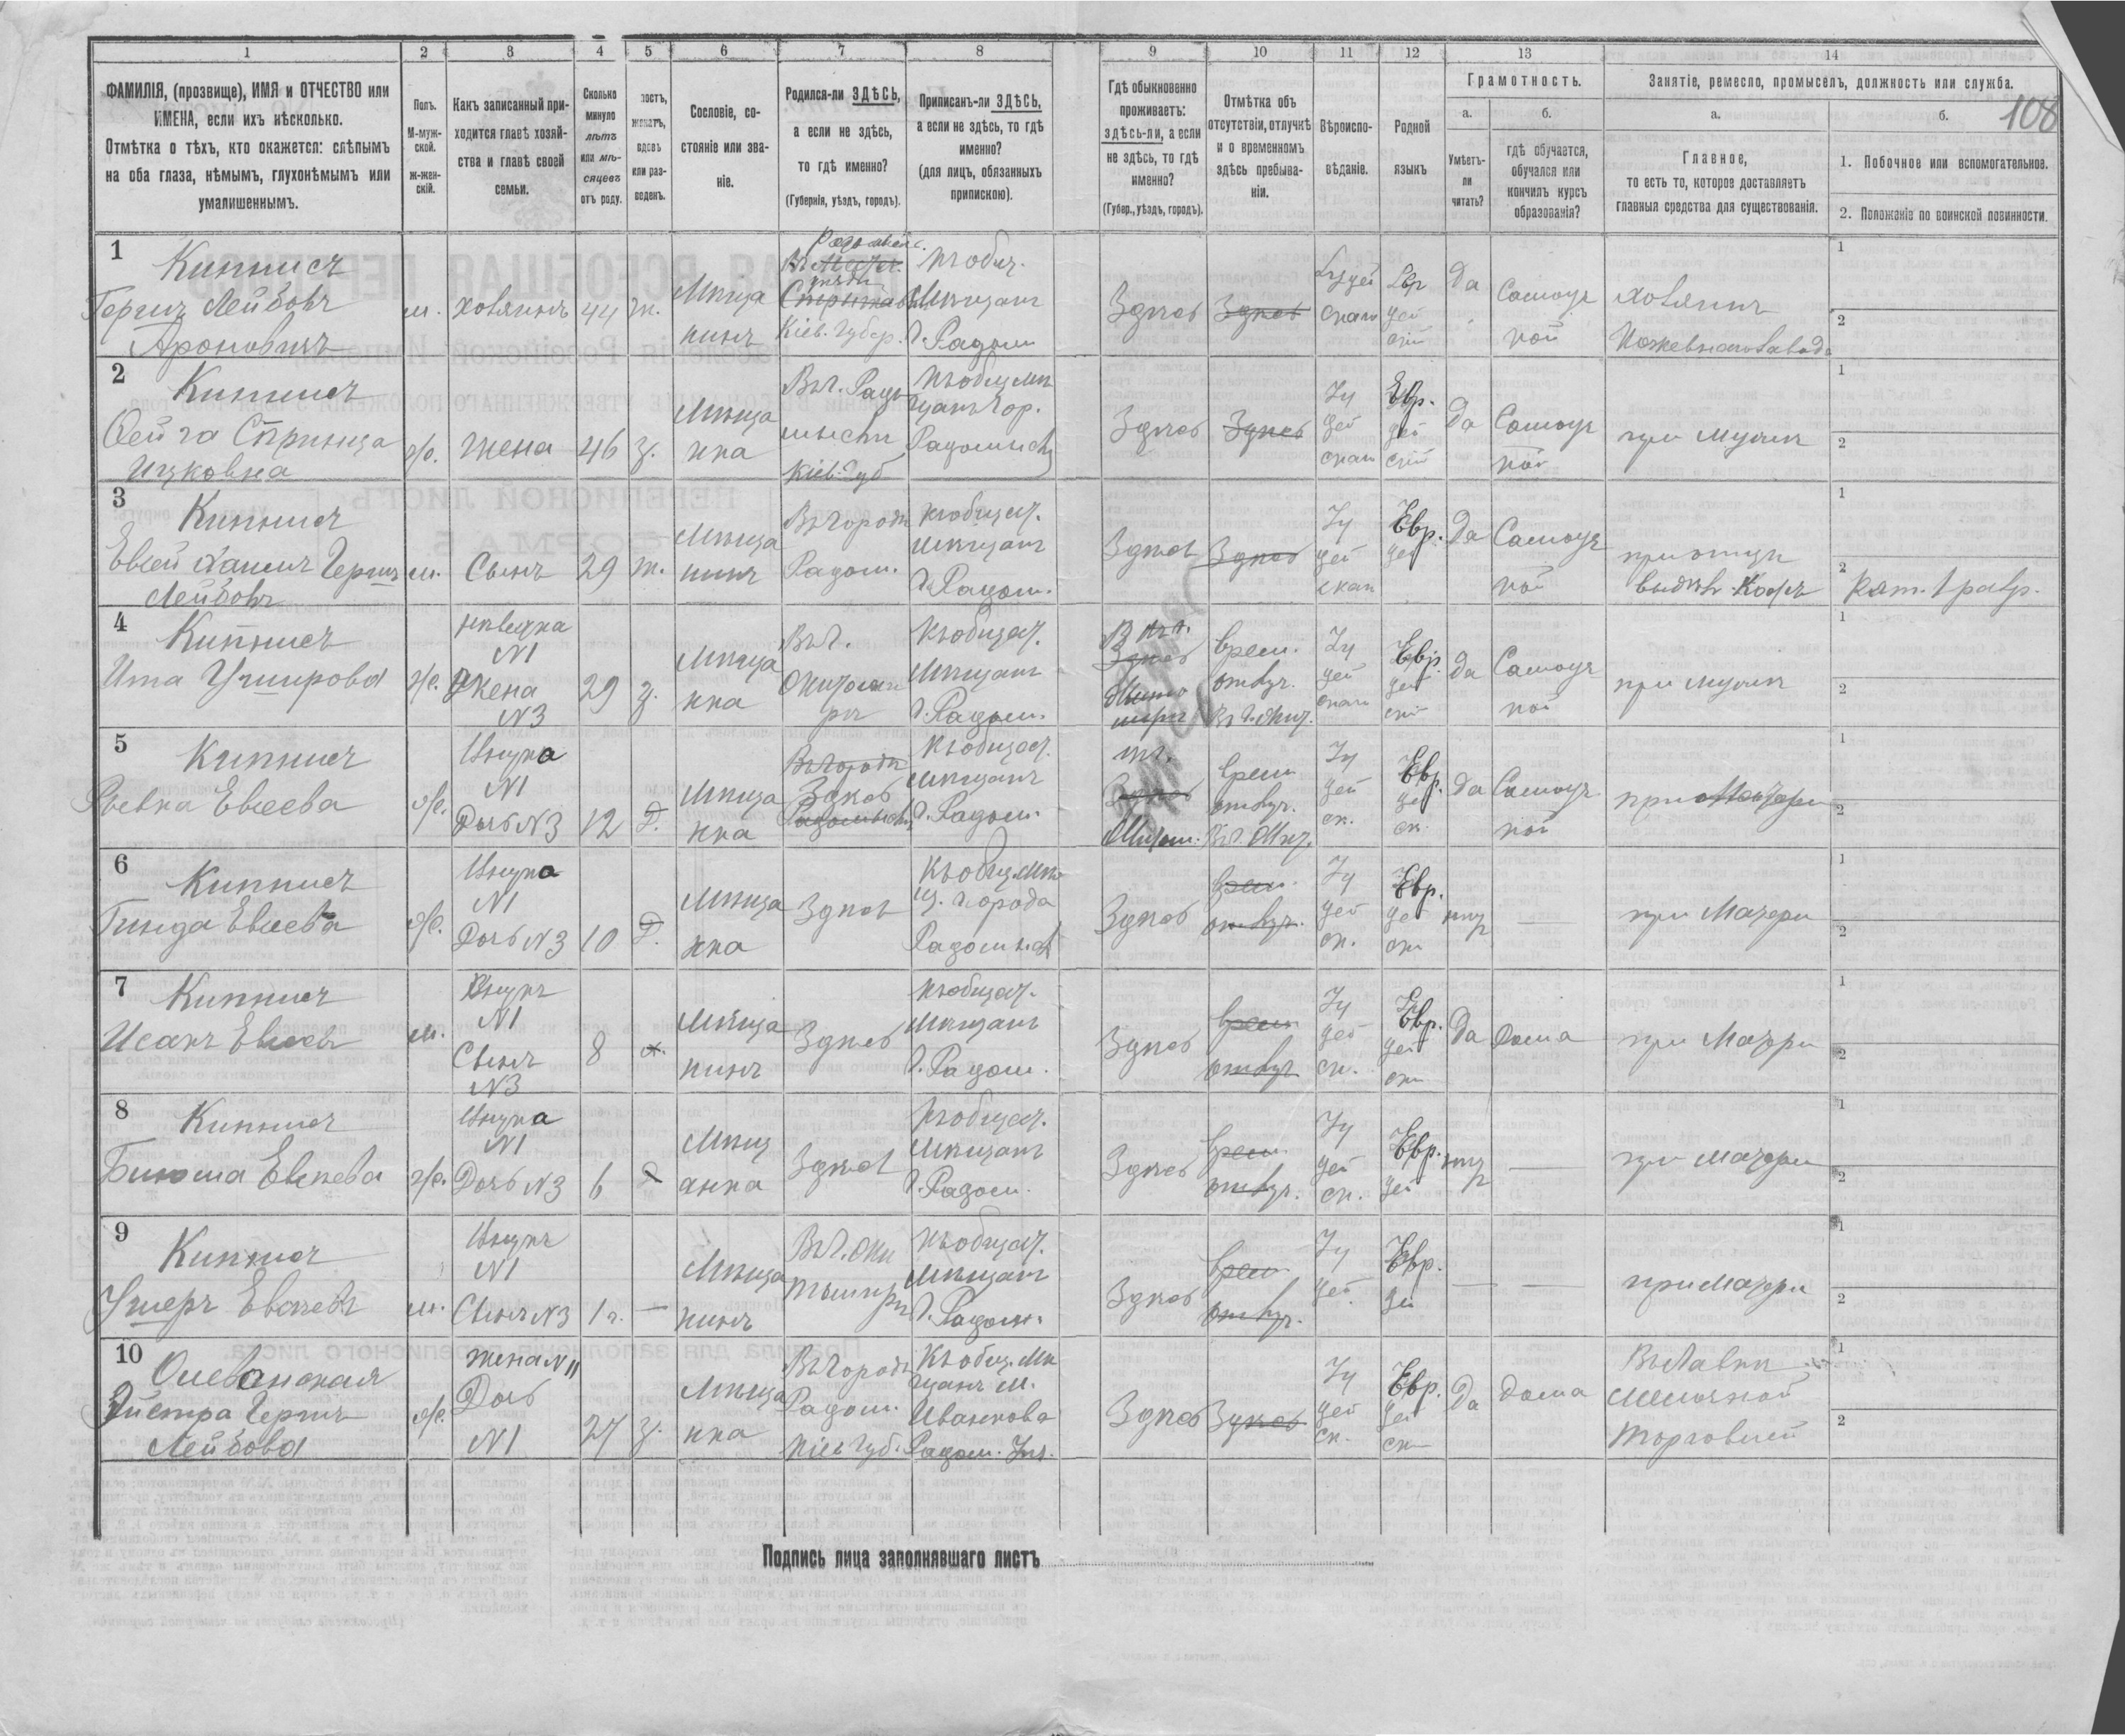 1 2 3 4 5 6 7 8 9 10 11 12 13 14
ФАМИЛІЯ, (прозвище), ИМЯ и ОТЧЕСТВО или
ИМЕНА, если ихъ нѣсколько.
Отмѣтка о тѣхъ, кто окажется: слѣпымъ
на оба глаза, нѣмымъ, глухонѣмымъ или
умалишеннымъ.
Полъ.
М-муж-
ской.
Ж-жен-
скій.
Какъ записанный при-
ходится главѣ хозяй-
ства и главѣ своей
семьи.
Сколько
минуло
лѣтъ
или мѣ-
сяцевъ
отъ роду.
лостъ,
женатъ,
вдовъ
или раз-
веденъ.
Сословіе, со-
стояніе или зва-
ніе.
Родился-ли ЗДѢСЬ,
а если не здѣсь,
то гдѣ именно?
(Губернія, уѣздъ, городъ).
Приписанъ-ли ЗДѢСЬ,
а если не здѣсь, то гдѣ
именно?
(для лицъ, обязанныхъ
припискою).
Гдѣ обыкновенно
проживаетъ:
здѣсь-ли, а если
не здѣсь, то гдѣ
именно?
(Губер., уѣздъ, городъ).
Отмѣтка объ
отсутствіи, отлучкѣ
и о временномъ
здѣсь пребыва-
ніи.
Вѣроиспо-
вѣданіе.
Родной
языкъ
Грамотность.
а.
Умѣетъ-
ли
читать?
б.
гдѣ обучается,
обучался или
кончилъ курсъ
образованія?
Занятіе, ремесло, промыселъ, должность или служба.
108
а.
Главное,
то есть то, которое доставляетъ
главныя средства для существованія.
б.
1. Побочное или вспомогательное.
2. Положеніе по воинской повинности.
1
Кипнисъ
Гершъ Лейбовъ
Ароновичъ
м. хозяинъ 44 ж.
Мѣща
нинъ
Кіев. Губер.
Мѣщанъ
г. Радом
Здѣсь Здѣсь
Евр
дей
скій
да
Самоуч
кой
хозяинъ
Кожевеннаго завода
2
Кипнисъ
Сприница
Ицковна
ж. жена 46 з.
Мѣща
нка
Въ г. Радо
мыслѣ
Кіев. Губ
Къ общ. мѣ
щанъ гор.
Радомысль
Здѣсь Здѣсь
Іу
дей
скаго
Евр.
дей
скій
да
Самоуч
кой
при мужѣ
3
Кипнисъ
Евсей Хаимъ Гершъ
Лейбовъ
м. Сынъ 29 ж.
Мѣща
нинъ
Въ городѣ
Радом.
Къ общест.
мѣщанъ
г. Радом.
Здѣсь Здѣсь
Іу
дей
скаго
Евр.
дей
да
Самоуч
кой
при отцѣ
выдѣл. кожъ
Рат. 1 разр.
4
Кипнисъ
Ита Уширова
ж.
невѣстка
N1
Жена
N3
29 з.
Мѣща
нка
Въ г.
Житоми
рѣ
Къ общест.
Мѣщанъ
г. Радом.
Здѣсь
Жито
мирѣ
врем.
отлуч.
Въ г. Жит.
Іу
дей
скаго
Евр.
дей
скій
да
Самоуч
кой
при мужѣ
5
Кипнисъ
Ривка Евсеева
ж.
Внучка
N1
Дочь N3
12 Д.
Мѣща
нка
Въ городѣ
Здѣсь
Радомыслѣ
Къ общест.
мѣщанъ
г. Радом.
Здѣсь
Житом.
врем
отлуч.
Въ г. Жит.
Іу
дей
ск.
Евр.
дей
ск.
да
Самоуч
кой
при Матери
6
Кипнисъ
Гинда Евсеева
ж.
Внучка
N1
Дочь N3
10 Д.
Мѣща
нка
Здѣсь
Къ общ. Мѣ
щ. города
Радомысль
Здѣсь
врем.
отлуч.
Іу
дей
ск.
Евр.
дей
ски
нѣт —
при Матери
7
Кипнисъ
Исакъ Евсеевъ
м.
Внукъ
N1
Сынъ
N3
8 х.
Мѣща
нинъ
Здѣсь
Къ общест.
Мѣщанъ
г. Радом.
Здѣсь
врем
отлуч.
Іу
дей
ск.
Евр.
дей
ски
да дома
при Матери
8
Кипнисъ
Бинюма Евсеева
ж.
Внучка
N1
Дочь N3
6 Д
Мѣщ
анка
Здѣсь
Къ общест.
Мѣщанъ
г. Радом.
Здѣсь
врем.
отлуч.
Іу
дей
ск.
Евр.
дей
нѣт —
при матери
9
Кипнисъ
Ушеръ Евсеевъ
м.
Внукъ
N1
Сынъ N3
1 г. —
Мѣща
нинъ
Въ г. Жи
томирѣ
Къ общест.
Мѣщанъ
г. Радом.
Здѣсь
врем
отлуч.
Іу
дей.
Евр.
дей
— —
при Матери
10
Олеванская
Эйстра Гершъ
Лейбова
ж.
жена N 11
Дочь
N1
27 з.
Мѣща
нка
Въ городѣ
Радом.
Кіев Губ.
Къ общ. Мѣ
щанъ м.
Иванкова
Радом. Уѣз.
Здѣсь Здѣсь
Іу
дей
ск.
Евр.
дей
ски
да дома
Въ лавкѣ
мелочной
торговлей
Подпись лица заполнявшаго листъ